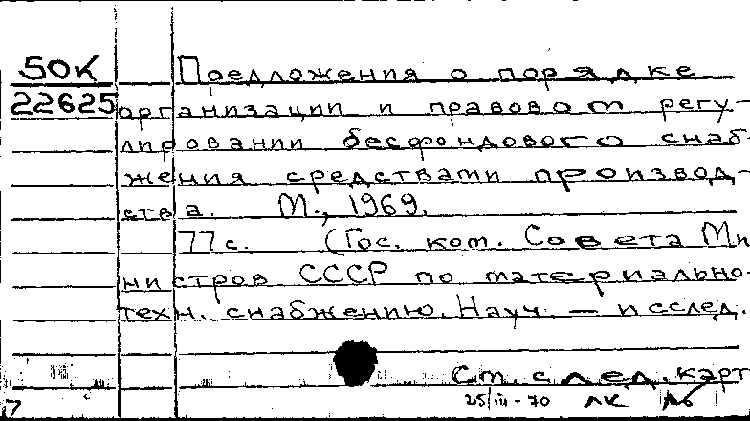 50K Предложения о порядке
22625 организации и правовом регу-
лировании бесфондового снаб-
жения средствами производ-
ства. М., 1969.
77 с. (Гос. ком. Совета Ми
нистров СССР по материально-
техн. снабжению. Науч. — исслед.
См. след. карт
25/III-70 ЛК
7